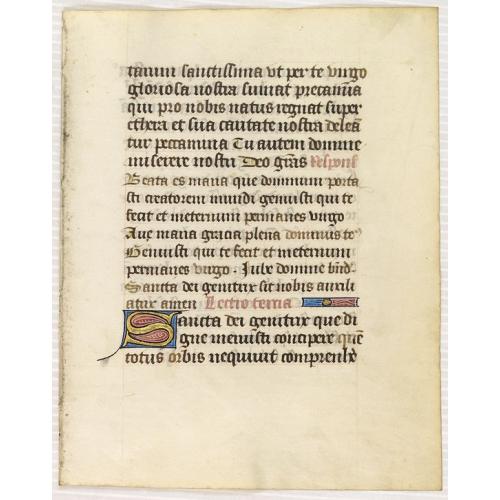 tarum sanctissima vt per te virgo
gloriosa nostra sumat precamina
qui pro nobis natus regnat super
ethera et sua caritate nostra deleā
tur peccamina Tu autem domine
miserere nostri Deo grās Respons̄
Beata es maria que dominum porta
sti creatorem mundi genuisti qui te
fecit et ineternum permanes virgo
Aue maria gracia plena dominus te
Genuisti qui te fecit et ineternum
permanes virgo. Iube domne bn̄d.
Sancta dei genitrix sit nobis auxili
atrix amen Lectio tercia
Sancta dei genitrix que di
gne meruisti concipere quē
totus orbis nequiuit comprenhē